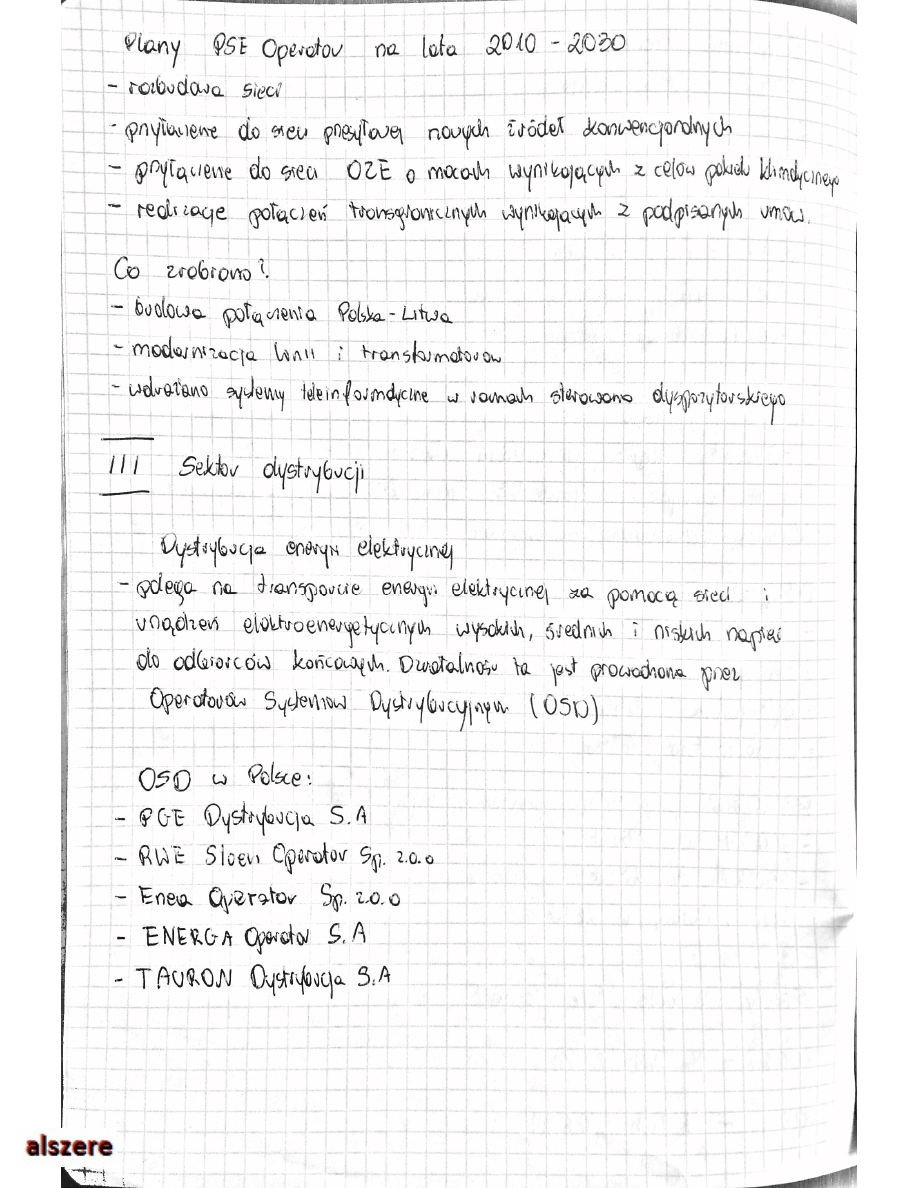 Plany PSE Operator na lata 2010 - 2030
- rozbudowa sieci
- przyłączenie do sieci przesyłowej nowych źródeł konwencjonalnych
- przyłączenie do sieci OZE o mocach wynikających z celów pakietu klimatycznego
- realizacje połączeń transgranicznych wynikających z podpisanych umów.
Co zrobiono?
- budowa połączenia Polska-Litwa
- modernizacja linii i transformatorów
- wdrażano systemy teleinformatyczne w ramach sterowania dyspozytorskiego
III Sektor dystrybucji
Dystrybucja energii elektrycznej
- polega na transporcie energii elektrycznej za pomocą sieci i
urządzeń elektroenergetycznych wysokich, średnich i niskich napięć
do odbiorców końcowych. Działalność ta jest prowadzona przez
Operatorów Systemów Dystrybucyjnym (OSD)
OSD w Polsce:
- PGE Dystrybucja S.A
- RWE Stoen Operator Sp. z.o.o
- Enea Operator Sp. z.o.o
- ENERGA Operator S.A
- TAURON Dystrybucja S.A
alszere